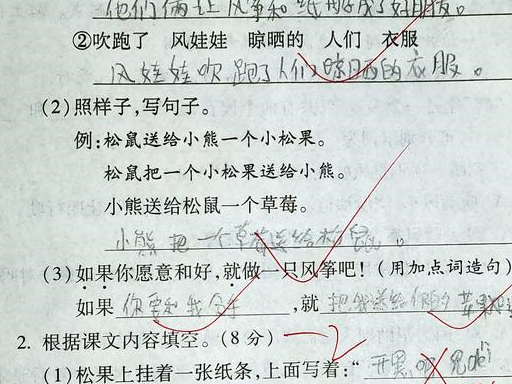 他们俩让风筝和纸船成了好朋友。
②吹跑了 风娃娃 晾晒的 人们 衣服
风娃娃吹跑了人们晾晒的衣服。
(2)照样子,写句子。
例:松鼠送给小熊一个小松果。
松鼠把一个小松果送给小熊。
小熊送给松鼠一个草莓。
小熊把一个草莓送给松鼠。
(3)如果你愿意和好,就做一只风筝吧!(用加点词造句)
如果你要和我,就把我送给你的苹果
2. 根据课文内容填空。(8分) —2
(1)松果上挂着一张纸条,上面写着:“